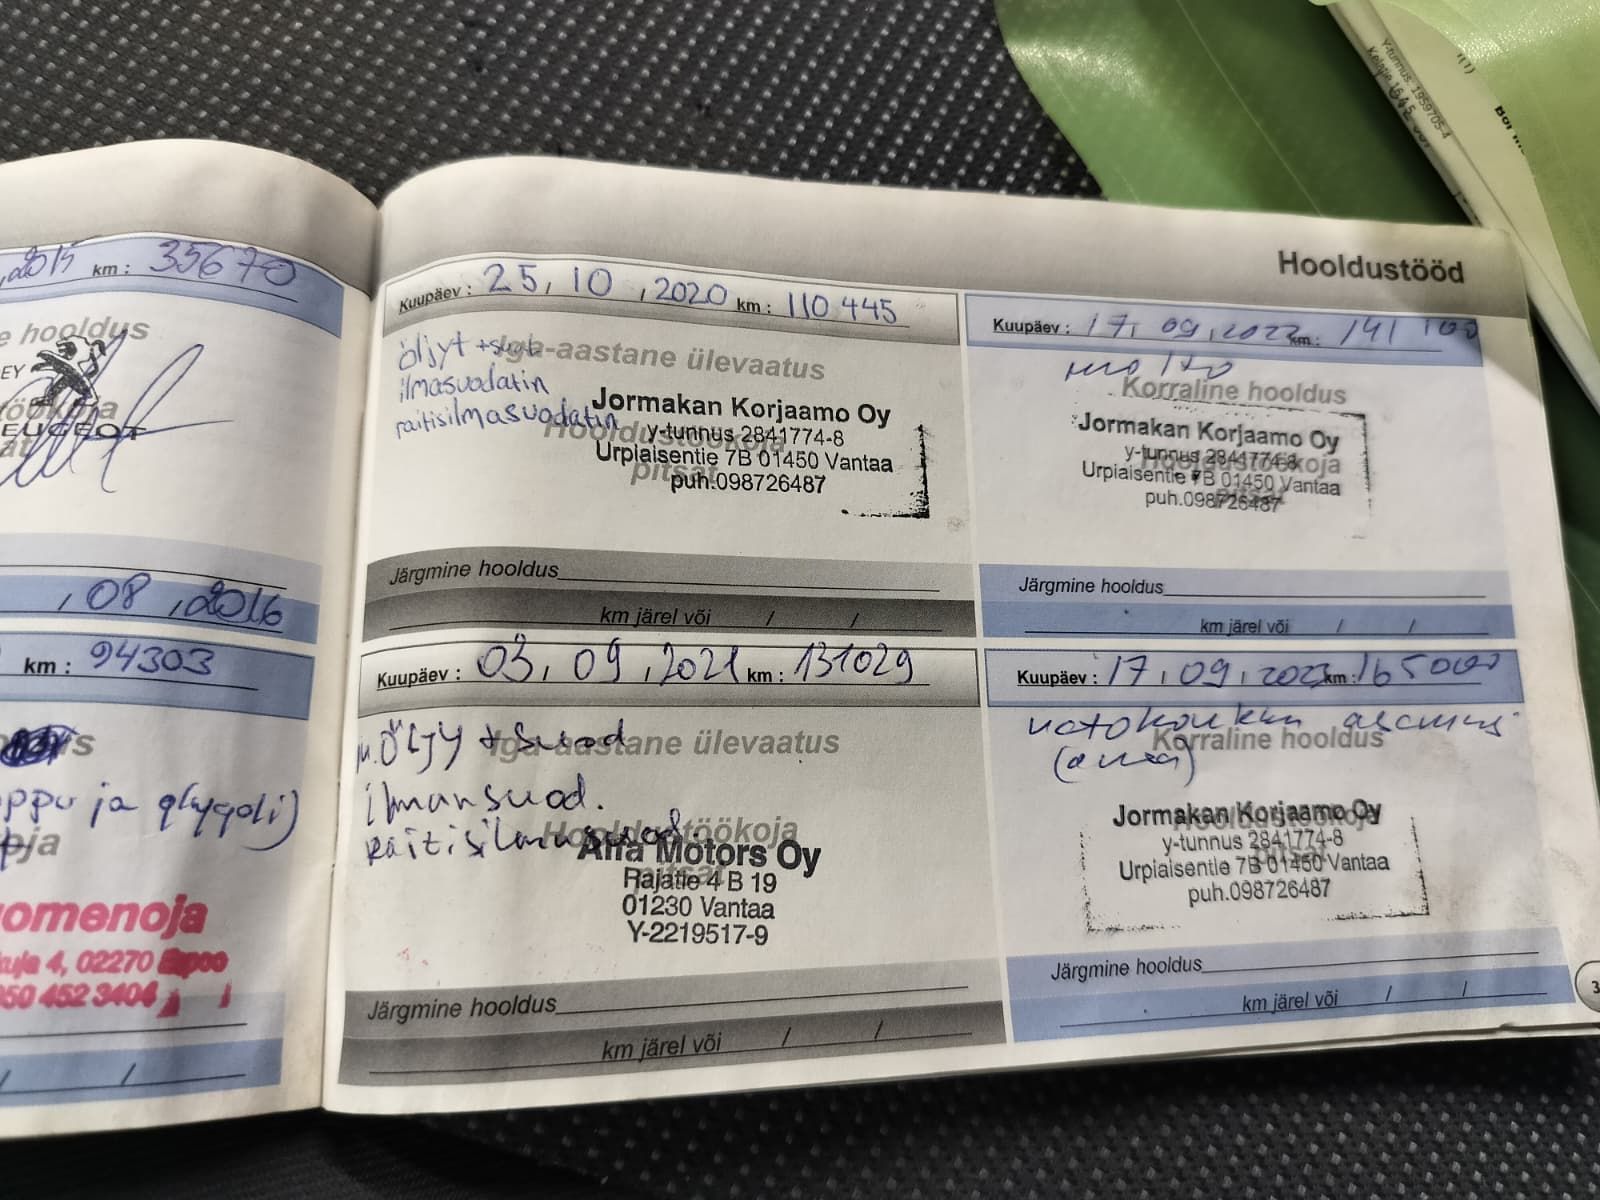 ,2015 km : 35670
e hooldus
EY
öökoja
EUGEOT
, 08 , 2016
km : 94303
oppu ja glygoli)
oja
omenoja
kuja 4, 02270 Espoo
050 452 3404
Hooldustööd
Kuupäev : 25, 10 , 2020 km : 110 445
Iga-aastane ülevaatus
öljyt +suod
ilmasuodatin
raitisilmasuodatin
Hooldustöökoja
pitsat
Jormakan Korjaamo Oy
y-tunnus 2841774-8
Urpiaisentie 7B 01450 Vantaa
puh.098726487
Järgmine hooldus
km järel või / /
Kuupäev : 17, 09, 2022 km : 141 100
Korraline hooldus
Hooldustöökoja
pitsat
Jormakan Korjaamo Oy
y-tunnus 2841774-8
Urpiaisentie 7B 01450 Vantaa
puh.098726487
Järgmine hooldus
km järel või / /
Kuupäev : 03, 09 , 2021 km : 131029
Iga-aastane ülevaatus
m.ÖLJY + suod
ilmansuod.
raitisilmasuod.
Hooldustöökoja
pitsat
Alfa Motors Oy
Rajatie 4 B 19
01230 Vantaa
Y-2219517-9
Järgmine hooldus
km järel või / /
Kuupäev : 17, 09, 2023 km : 165000
Korraline hooldus
Hooldustöökoja
pitsat
Jormakan Korjaamo Oy
y-tunnus 2841774-8
Urpiaisentie 7B 01450 Vantaa
puh.098726487
Järgmine hooldus
km järel või / /
3
Y-tunnus: 1959705-4